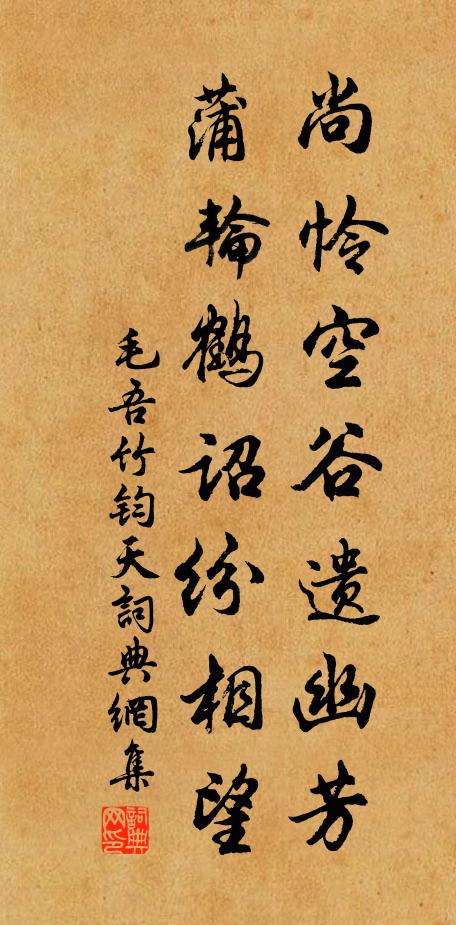 尚怜空谷遗幽芳
蒲輪鶴詔纷相望
毛吾竹钧天詞典網集
詞典网印